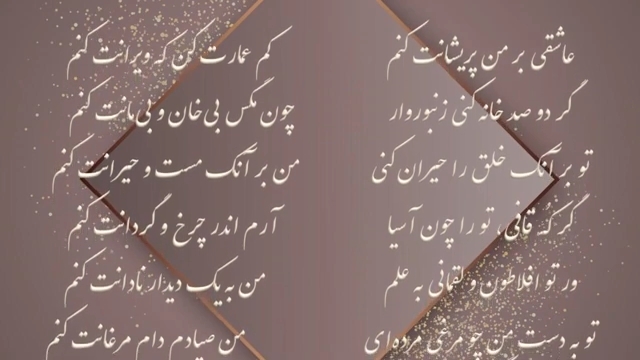 عاشقی بر من پریشانت کنم
کم عمارت کن که ویرانت کنم
گر دو صد خانه کنی زنبوروار
چون مگس بی‌خان و بی‌مانت کنم
تو بر آنک خلق را حیران کنی
من بر آنک مست و حیرانت کنم
گر که قافی، تو را چون آسیا
آرم اندر چرخ و گردانت کنم
ور تو افلاطون و لقمانی به علم
من به یک دیدار نادانت کنم
تو به دست من چو مرغی مرده‌ای
من صیادم دام مرغانت کنم